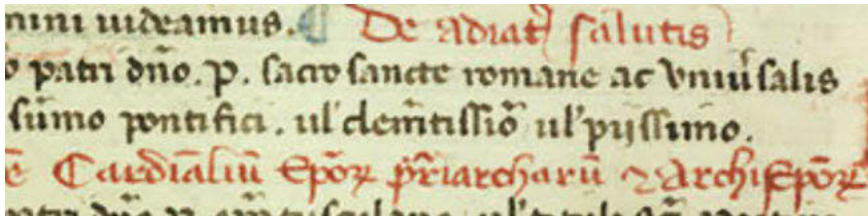 mini uideamus. ¶ De adiat̉ salutis
o patri dn̄o. p. sacrosancte romane ac vniu̓salis
sūmo pontifici. ul' clem̄tissīo ul' pijssimo.
Cardīaliū Ep̄oꝝ p̄riarcharū ⁊ Archiep̄oꝝ